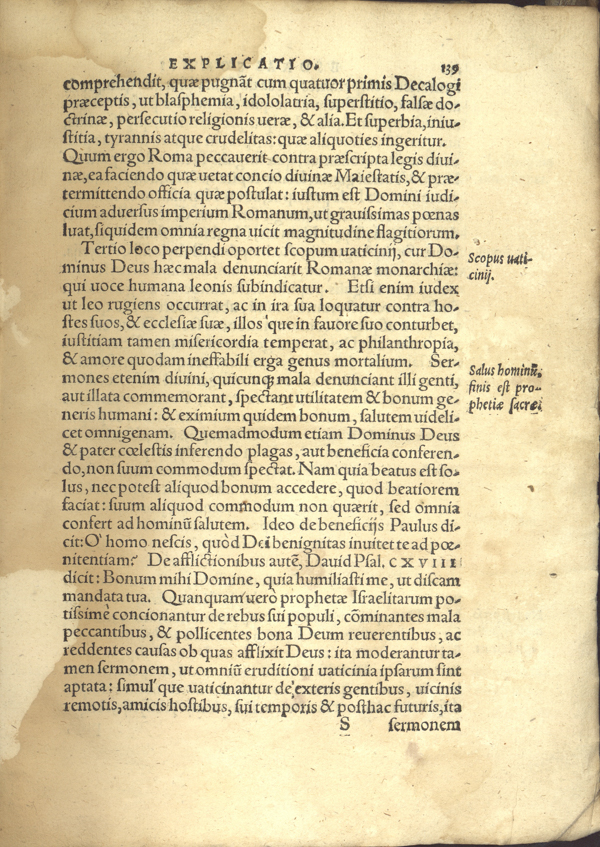 EXPLICATIO. 139
comprehendit, quæ pugnãt cum quatuor primis Decalogi
præceptis, ut blasphemia, idololatria, superstitio, falsæ do-
ctrinæ, persecutio religionis ueræ, & alia. Et superbia, iniu-
stitia, tyrannis atque crudelitas: quæ aliquoties ingeritur.
Quum ergo Roma peccauerit contra præscripta legis diui-
næ, ea faciendo quæ uetat concio diuinæ Maiestatis, & præ-
termittendo officia quæ postulat: iustum est Domini iudi-
cium aduersus imperium Romanum, ut grauissimas pœnas
luat, siquidem omnia regna uicit magnitudine flagitiorum.
Tertio loco perpendi oportet scopum uaticinij, cur Do-
minus Deus hæc mala denunciarit Romanæ monarchiæ:
Scopus uati-
cinij.
qui uoce humana leonis subindicatur. Etsi enim iudex
ut leo rugiens occurrat, ac in ira sua loquatur contra ho-
stes suos, & ecclesiæ suæ, illos'que in fauore suo conturbet,
iustitiam tamen misericordia temperat, ac philanthropia,
& amore quodam ineffabili erga genus mortalium. Ser-
mones etenim diuini, quicunqꝫ mala denunciant illi genti,
Salus hominũ,
finis est pro-
phetiæ sacræ.
aut illata commemorant, spectant utilitatem & bonum ge-
neris humani: & eximium quidem bonum, salutem uideli-
cet omnigenam. Quemadmodum etiam Dominus Deus
& pater cœlestis inferendo plagas, aut beneficia conferen-
do, non suum commodum spectat. Nam quia beatus est so-
lus, nec potest aliquod bonum accedere, quod beatiorem
faciat: suum aliquod commodum non quærit, sed omnia
confert ad hominũ salutem. Ideo de beneficijs Paulus di-
cit: O' homo nescis, quòd Dei benignitas inuitet te ad pœ-
nitentiam? De afflictionibus autẽ, Dauid Psal. CXVIII
dicit: Bonum mihi Domine, quia humiliasti me, ut discam
mandata tua. Quanquam uerò prophetæ Israelitarum po-
tissimè concionantur de rebus sui populi, cõminantes mala
peccantibus, & pollicentes bona Deum reuerentibus, ac
reddentes causas ob quas afflixit Deus: ita moderantur ta-
men sermonem, ut omniũ eruditioni uaticinia ipsarum sint
aptata: simul'que uaticinantur de exteris gentibus, uicinis
remotis, amicis hostibus, sui temporis & posthac futuris, ita
S sermonem